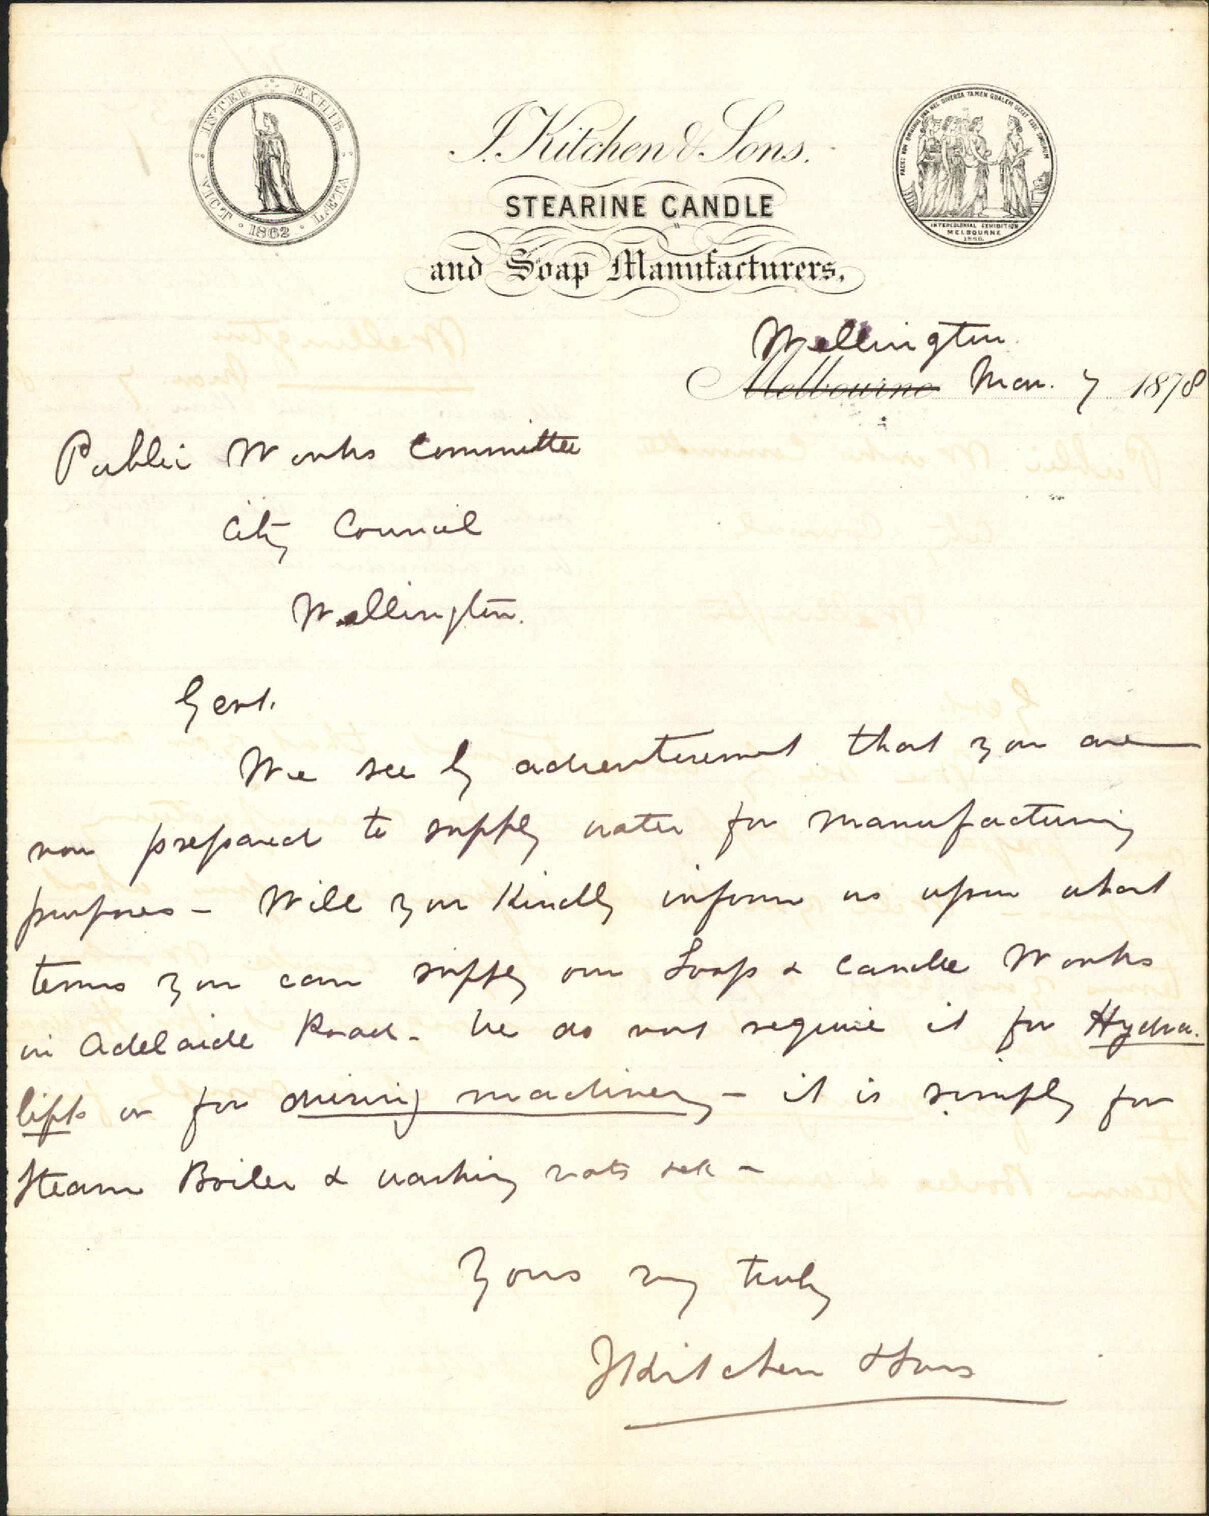 VICT · INTER · EXHIB · LNETA
· 1862 ·
INTERCOLONIAL EXHIBITION
MELBOURNE
J. Kitchen & Sons.
STEARINE CANDLE
and Soap Manufacturers.
Wellington
Melbourne Mar. 7 1878
Public Works Committee
City Council
Wellington.
Gent.
We see by advertisement that you are
now prepared to supply water for manufacturing
purposes - Will you Kindly inform us upon what
terms you can supply our Soap & Candle Works
in Adelaide Road. We do not require it for Hydra.
lifts or for driving machinery - it is simply for
Steam Boiler & washing vats &c -
Yours very truly
J Kitchen & Sons